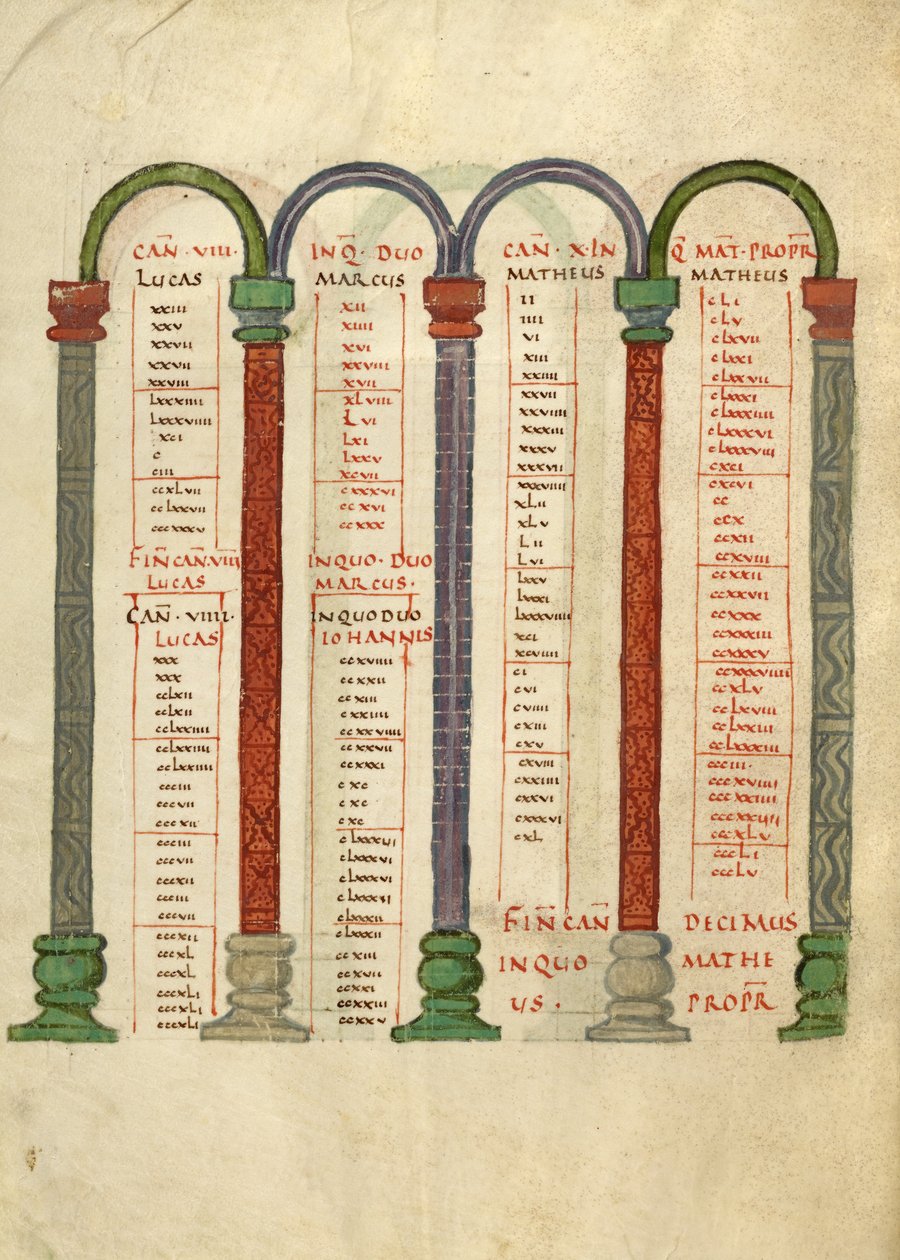 CAN̄ · VIII·
LUCAS
xxiii
xxv
xxvii
xxvii
xxviii
Lxxxiiii
Lxxxviiii
xci
c
ciii
ccxLvii
ccLxxvii
cccxxxv
FIN̄ CAN̄·VIII
LUCAS
CAN̄ · VIIII·
LUCAS
xxx
xxx
ccLxii
ccLxii
ccLxxiiii
ccLxxiiii
ccLxxiiii
ccciii
cccvii
cccxii
ccciii
cccvii
cccxii
ccciii
cccvii
cccxii
cccxL
cccxL
cccxLi
cccxLi
cccxLi
IN Q̄· DUO
MARCUS
xii
xiiii
xvi
xxviii
xvii
xLviii
Lvi
Lxi
Lxxv
xcvii
cxxxvi
ccxvi
ccxxx
IN QUO· DUO
MARCUS·
IN QUO DUO
IOHANNIS
ccxviiii
ccxxii
ccxiii
cxxiiii
ccxxviiii
ccxxvii
ccxxxi
cxc
cxc
cxc
cLxxxvi
cLxxxvi
cLxxxvi
cLxxxvi
cLxxxii
cLxxxii
ccxiii
ccxvii
ccxxi
ccxxiii
ccxxv
CAN̄ · X·IN
MATHEUS
ii
iiii
vi
xiii
xxiiii
xxvii
xxviiii
xxxiii
xxxv
xxxvii
xxxviiii
xLii
xLv
Lii
Lvi
Lxxv
Lxxxi
Lxxxviiii
xci
xcviiii
ci
cvi
cviiii
cxiii
cxv
cxviii
cxxiiii
cxxvi
cxxxvi
cxL
FIN̄ CAN̄
IN QUO
US·
Q̄ MAT̄·PROPR̄
MATHEUS
cLi
cLv
cLxvii
cLxxi
cLxxvii
cLxxxi
cLxxxiiii
cLxxxvi
cLxxxviii
cxci
cxcvi
cc
ccx
ccxii
ccxviii
ccxxii
ccxxvii
ccxxx
ccxxxiii
ccxxxv
ccxxxviiii
ccxLv
ccLxviii
ccLxxiii
ccLxxxiii
ccciii·
cccxviiii
cccxxiiii
cccxxvii
cccxLv
cccLi
cccLv
DECIMUS
MATHE
PROPR̄